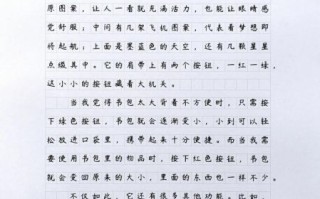 原图案，让人一看就充满活力，也能让眼睛感
觉舒服；中间有几架飞机图案，代表着梦想即
将起航；上面是墨蓝色的天空，还有几颗星星
点缀其中。它的肩带上有两个按钮，一红一绿，
这小小的按钮藏着大机关。
当我觉得书包太大背着不方便时，只需按
下绿色按钮，书包就会逐渐变小，小到可以轻
松放进口袋里，携带起来十分便捷。而当我需
要使用书包里的物品时，按下红色按钮，书包
就会变回原来的大小，里面的东西也一样不少。
不仅如此，它还有很多其他功能。比如，